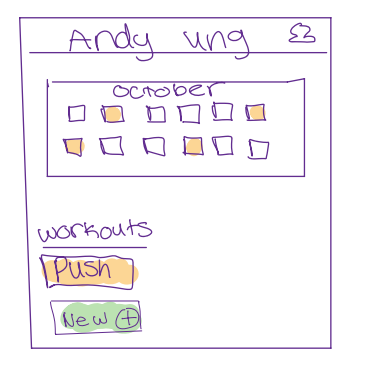 Andy Ung
October
Workouts
Push
New